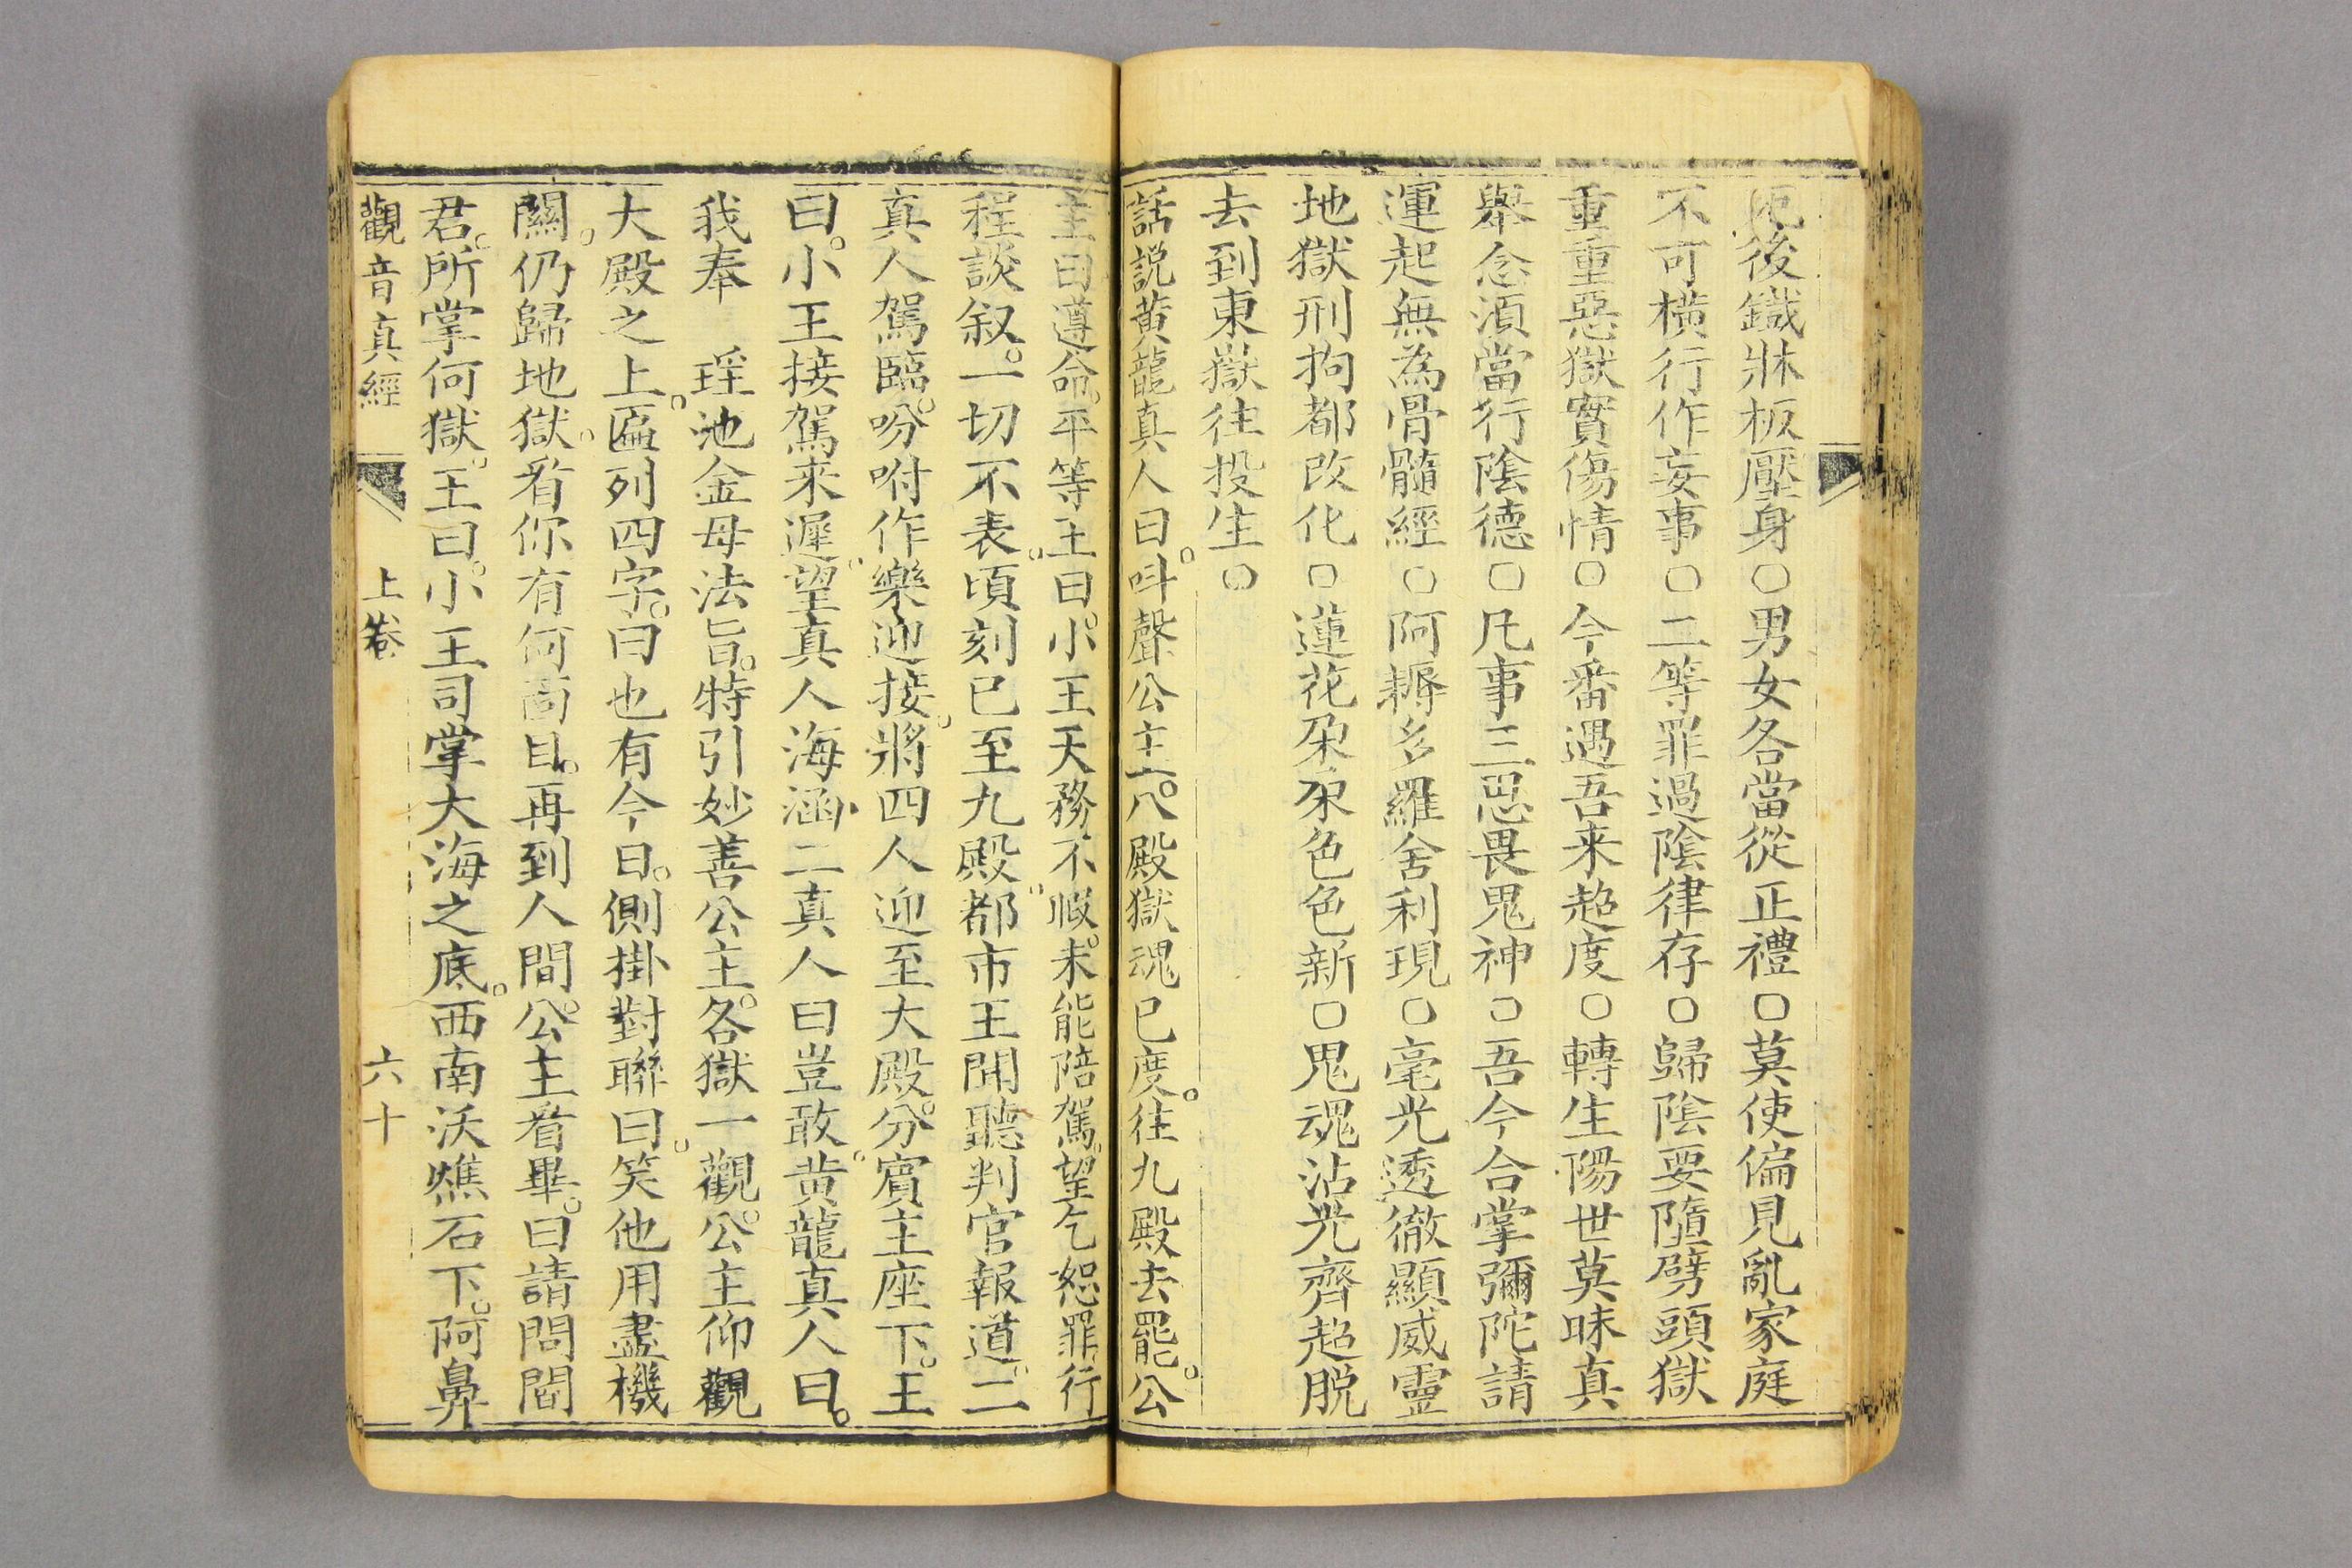 死後鐵牀板壓身○男女各當從正禮○莫使偏見亂家庭
不可橫行作妄事○二等罪過陰律存○歸陰要墮劈頭獄
重重惡獄實傷情○今番遇吾来超度○轉生陽世莫昧真
舉念須當行陰德○凡事三思畏鬼神○吾今合掌彌陀請
運起無為骨髓經○阿耨多羅舍利現○毫光透徹顯威靈
地獄刑拘都改化○蓮花朵朵色色新○鬼魂沾光齊超脱
去到東嶽往投生○
話説黄龍真人曰。呌聲公主。八殿獄魂已度。往九殿去罷。公
主曰遵命。平等王曰。小王天務不暇。未能陪駕。望乞恕罪行
程談叙。一切不表。頃刻已至九殿。都市王聞聽判官報道。二
真人駕臨。吩咐作樂迎接。將四人迎至大殿。分賓主座下。王
曰。小王接駕来遲。望真人海涵二真人曰豈敢。黄龍真人曰。
我奉　瑶池金母法旨。特引妙善公主。各獄一觀。公主仰觀
大殿之上。匾列四字。曰也有今日。側掛對聯曰。笑他用盡機
關。仍歸地獄。看你有何面目。再到人間。公主看畢。曰請問閻
君。所掌何獄。王曰。小王司掌大海之底。西南沃燋石下。阿鼻
觀音真經　上卷　六十